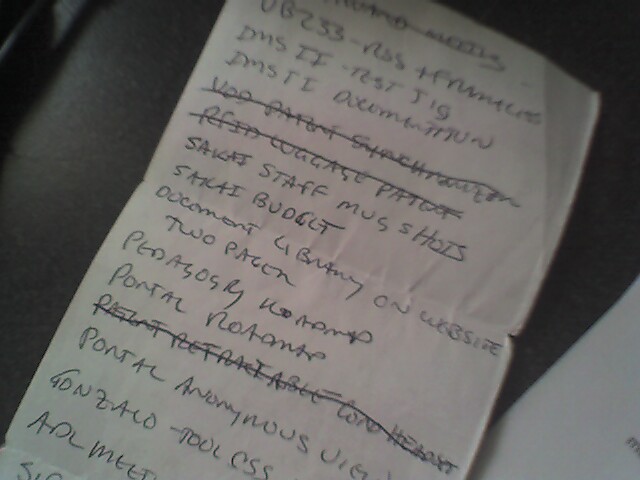 UB233 - RSS +
DMS II - TEST JIG
DMS II DOCUMENTATION
VOD PATENT SYNCHRONIZATION
RFID LUGGAGE PATENT
SAKAI STAFF MUG SHOTS
SAKAI BUDGET
DOCUMENT LIBRARY ON WEBSITE
TWO PAGER
PEDAGOGY ROADMAP
PORTAL ROADMAP
PATENT RETRACTABLE CORD HEADSET
PORTAL ANONYMOUS
GONZALO - TOOL CSS
ADL MEET